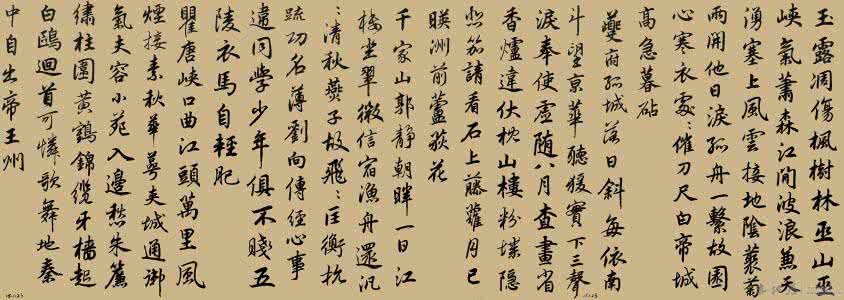 玉露凋傷楓樹林巫山巫
峽氣蕭森江間波浪兼天
湧塞上風雲接地陰叢菊
兩開他日淚孤舟一繫故園
心寒衣處〻催刀尺白帝城
高急暮砧
夔府孤城落日斜每依南
斗望京華聽猨實下三聲
淚奉使虛隨八月查畫省
香爐違伏枕山樓粉堞隱
悲笳請看石上藤蘿月已
暎洲前蘆荻花
千家山郭靜朝暉一日江
樓坐翠微信宿漁舟還汎
〻清秋燕子故飛〻匡衡抗
疏功名薄劉向傳經心事
違同學少年俱不賤五
陵衣馬自輕肥
瞿唐峽口曲江頭萬里風
煙接素秋華萼夾城通御
氣夫容小苑入邊愁朱簾
繡柱圍黃鶴錦纜牙檣起
白鷗迴首可憐歌舞地秦
中自古帝王州